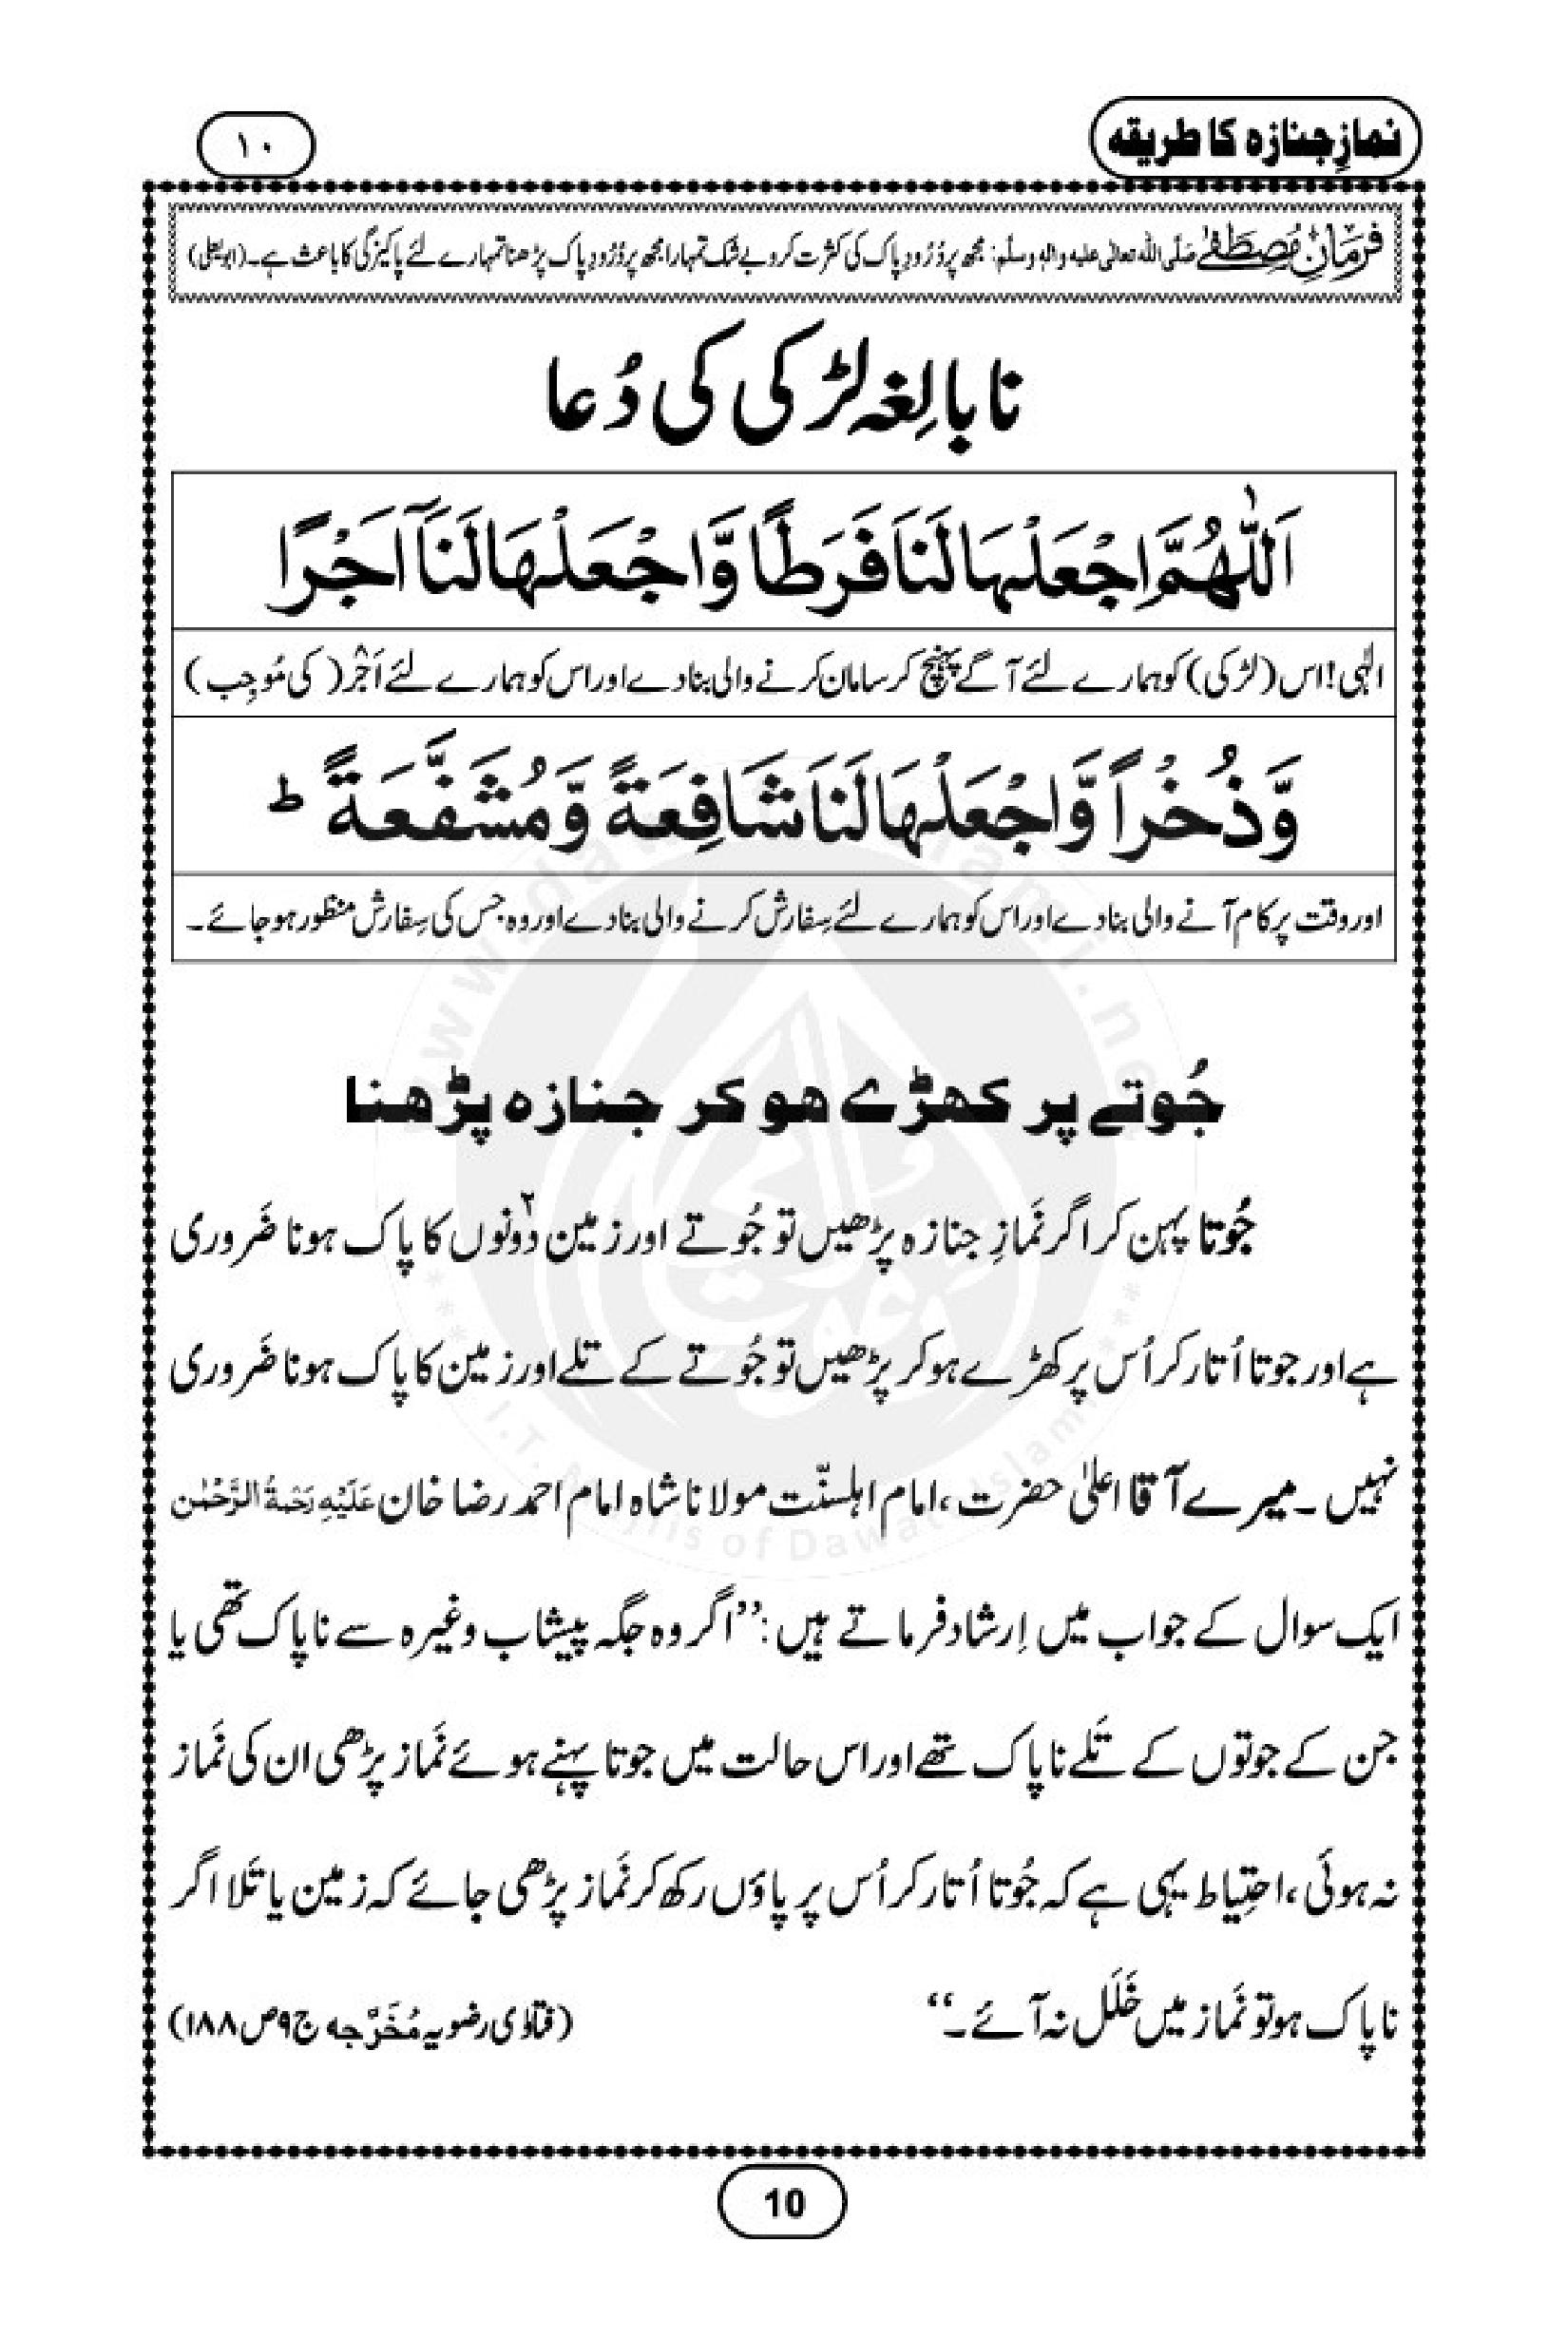 نمازِ جنازہ کا طریقہ
۱۰
فرمانِ مصطفےٰ صلَّی اللہ تعالٰی علیہ واٰلہٖ وسلَّم: مجھ پر دُرُودِ پاک کی کثرت کرو بے شک تمہارا مجھ پر دُرُودِ پاک پڑھنا تمہارے لئے پاکیزگی کا باعث ہے۔ (ابو یعلی)
نابالِغہ لڑکی کی دُعا
اَللّٰھُمَّ اجْعَلْہَا لَنَا فَرَطًا وَّاجْعَلْھَا لَنَآ اَجْرًا
الٰہی! اس (لڑکی) کو ہمارے لئے آگے پہنچ کر سامان کرنے والی بنا دے اور اس کو ہمارے لئے اَجْر (کی مُوجِب)
وَّذُخْرًا وَّاجْعَلْھَا لَنَا شَافِعَۃً وَّمُشَفَّعَۃً ؕ
اور وقت پر کام آنے والی بنا دے اور اس کو ہمارے لئے سِفارِش کرنے والی بنا دے اور وہ جس کی سِفارِش منظور ہو جائے۔
جُوتے پر کھڑے ھو کر جنازہ پڑھنا
جُوتا پہن کر اگر نَمازِ جنازہ پڑھیں تو جُوتے اور زمین دونوں کا پاک ہونا ضَروری
ہے اور جوتا اُتار کر اُس پر کھڑے ہو کر پڑھیں تو جُوتے کے تلے اور زمین کا پاک ہونا ضَروری
نہیں۔ میرے آقا اعلیٰ حضرت، امام اہلسنّت مولانا شاہ امام احمد رضا خان عَلَیْہِ رَحْمَۃُ الرَّحْمٰن
ایک سوال کے جواب میں اِرشاد فرماتے ہیں: ’’اگر وہ جگہ پیشاب وغیرہ سے ناپاک تھی یا
جن کے جوتوں کے تَلے ناپاک تھے اور اس حالت میں جوتا پہنے ہوئے نَماز پڑھی ان کی نَماز
نہ ہوئی، احتِیاط یہی ہے کہ جُوتا اُتار کر اُس پر پاؤں رکھ کر نَماز پڑھی جائے کہ زمین یا تَلا اگر
ناپاک ہو تو نَماز میں خَلَل نہ آئے۔‘‘ (فتاوٰی رضویہ مُخَرَّجہ ج۹ ص۱۸۸)
10
www.dawateislami.net
I.T. Majlis of DawateIslami
دعوت اسلامی